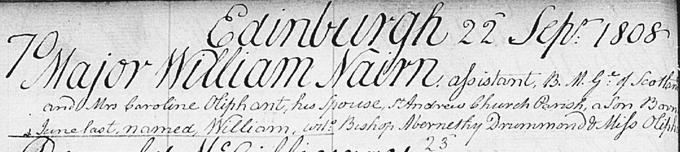 Edinburgh 22 Sepr. 1808
To Major William Nairn, assistant, B. M. Gl. of Scotland
and Mrs Caroline Oliphant, his Spouse, St Andrews Church Parish, a Son Born
June last, named, William, Bishop Abernethy Drummond & Miss Oliph
23